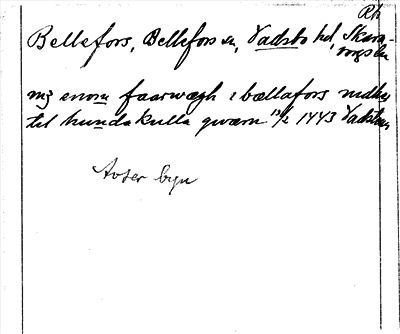 Rh
Bellefors, Bellefors sn, Vadsbo hd, Skara-
borgs län
mz enom faarwægh i bællafors nidher
til hunda kulla qwærn 13/2 1443 Vadstena
Avser byn